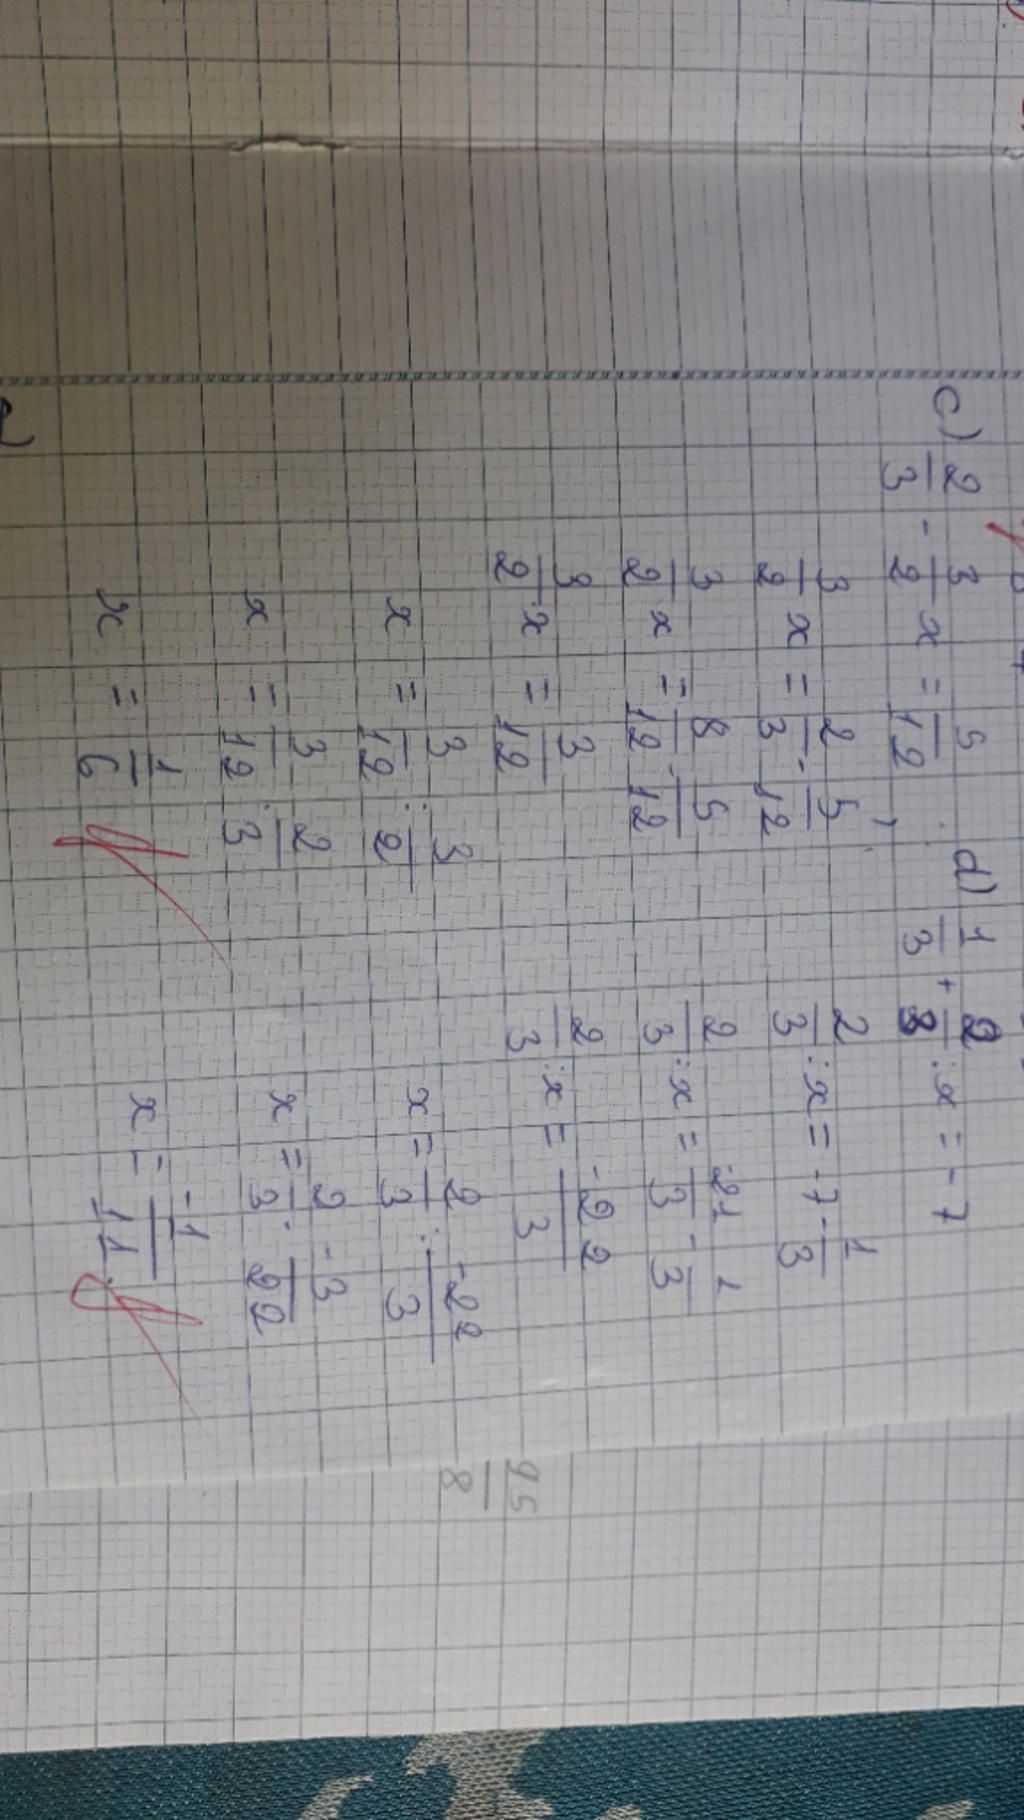 c) 2/3 - 3/2 x = 5/12
3/2 x = 2/3 - 5/12
3/2 x = 8/12 - 5/12
3/2 . x = 3/12
x = 3/12 : 3/2
x = 3/12 . 2/3
x = 1/6
d) 1/3 + 2/3 : x = -7
2/3 : x = -7 - 1/3
2/3 : x = -21/3 - 1/3
2/3 : x = -22/3
x = 2/3 : -22/3
x = 2/3 . -3/22
x = -1/11
95/8